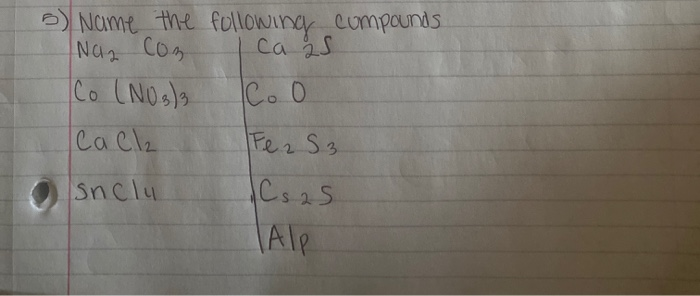 5) Name the following compounds
Na2 CO3
Co (NO3)3
Ca Cl2
SnCl4
Ca 2S
Co O
Fe2 S3
Cs2S
Alp